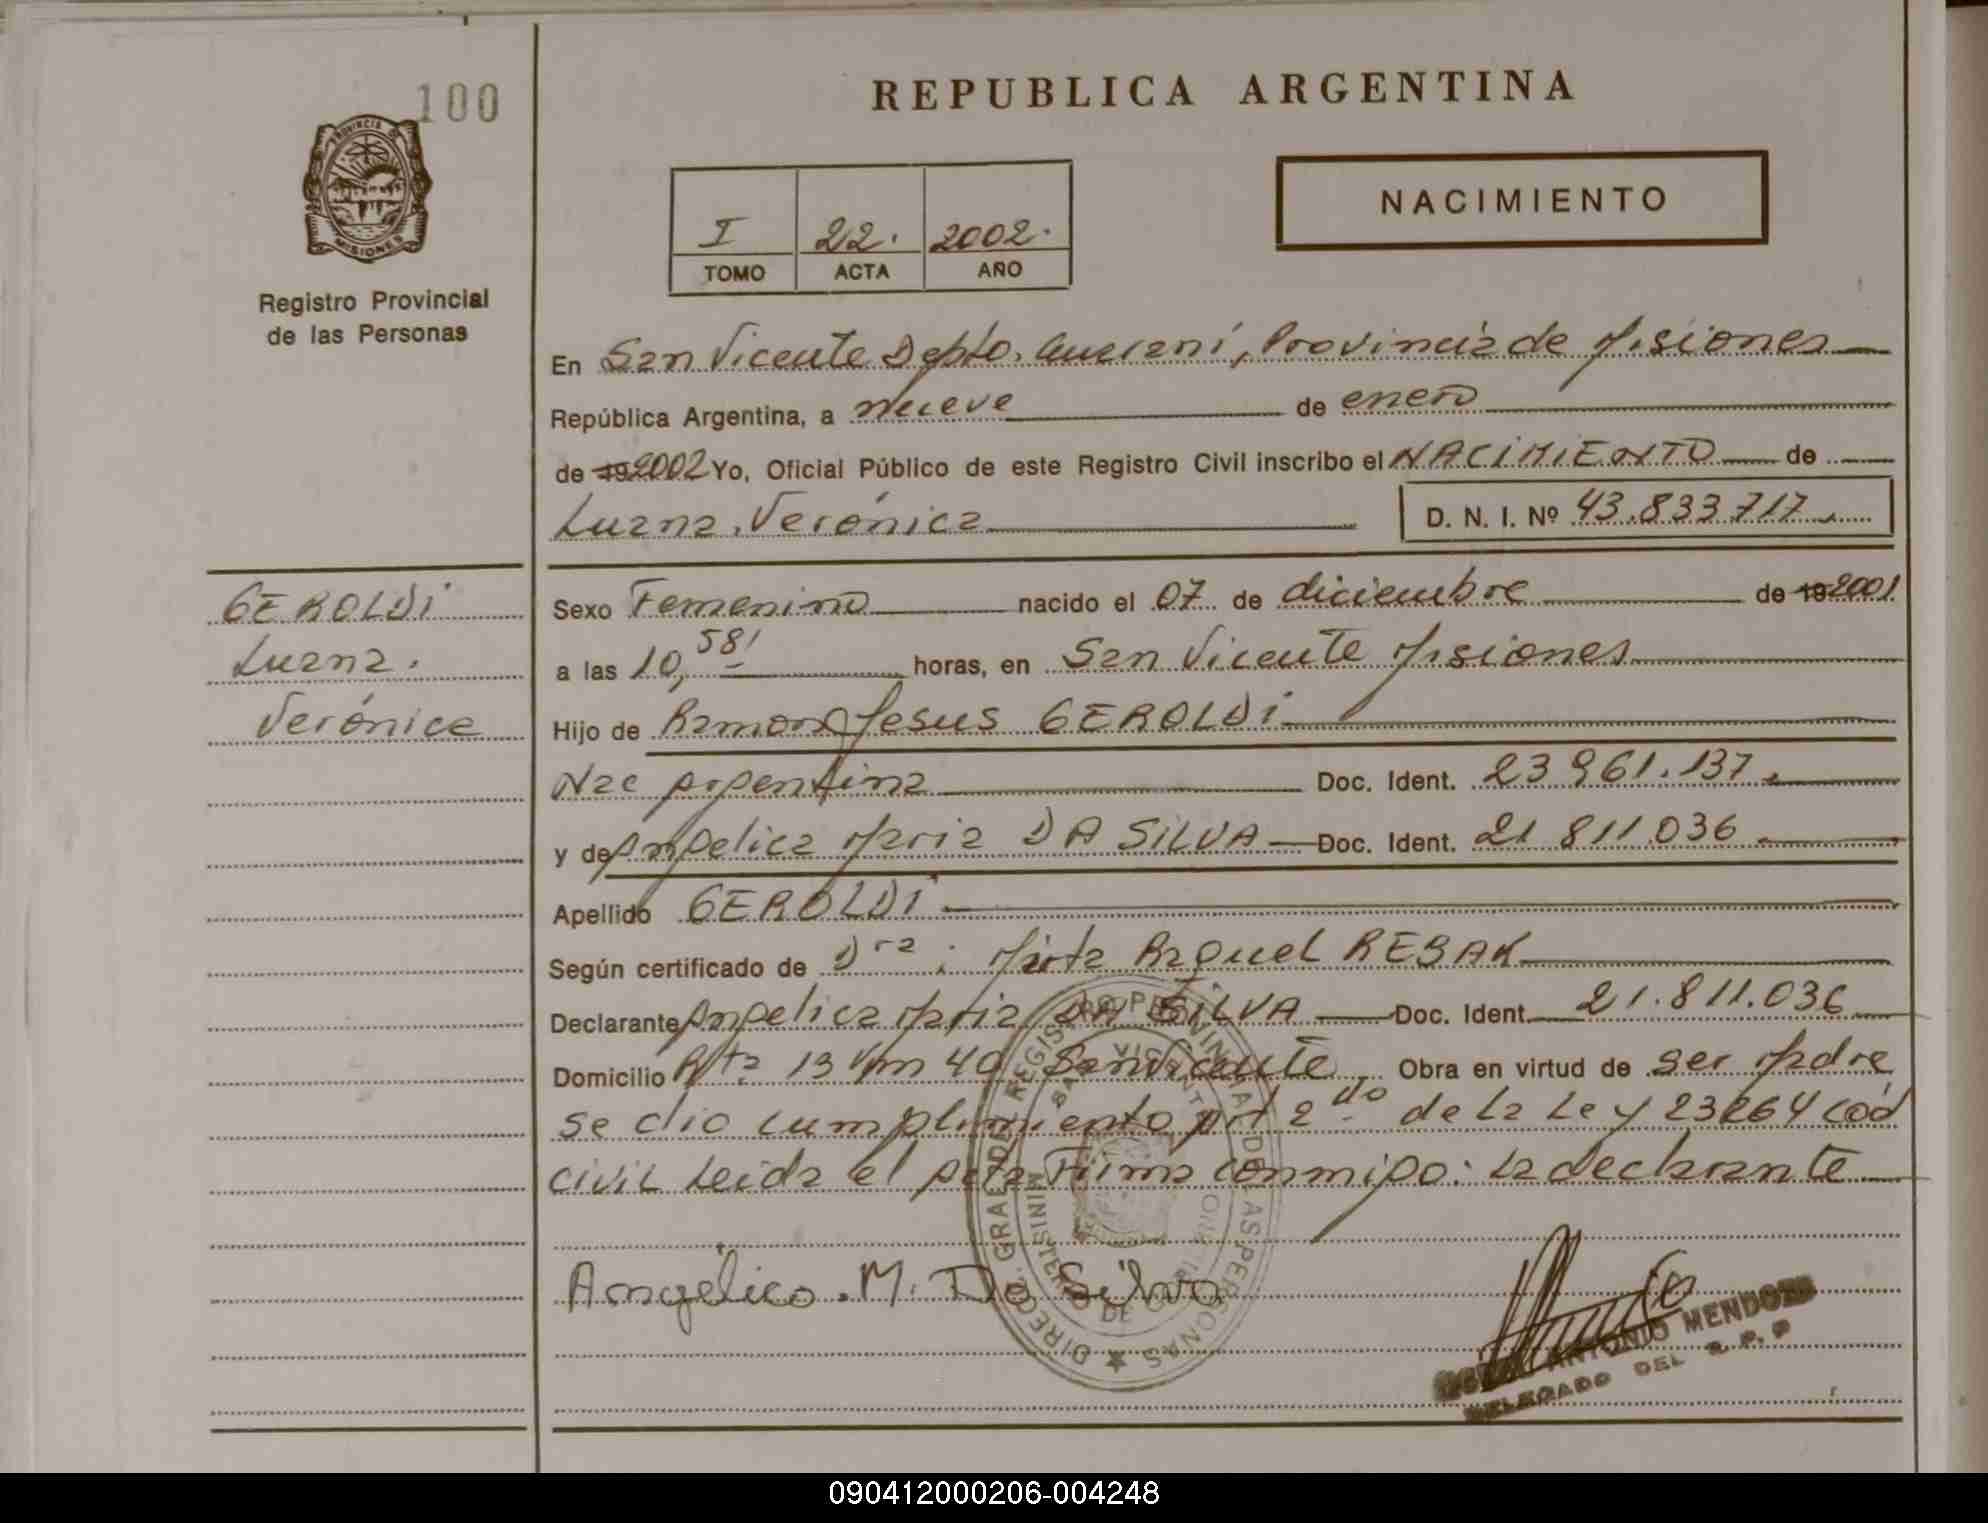 100
PROVINCIA DE
MISIONES
Registro Provincial
de las Personas
REPUBLICA ARGENTINA
I 22. 2002.
TOMO ACTA AÑO
NACIMIENTO
En San Vicente Depto. Guaraní, Provincia de Misiones
República Argentina, a nueve de enero
de 19 2002 Yo, Oficial Público de este Registro Civil inscribo el NACIMIENTO de
Luana. Verónica D. N. I. Nº 43.833.717
GEROLDI
Luana.
Verónica
Sexo Femenino nacido el 07 de diciembre de 19 2001
a las 10,58' horas, en San Vicente Misiones
Hijo de Ramon Jesus GEROLDI
Nac Argentina Doc. Ident. 23.961.137.
y de Angelica Maria DA SILVA Doc. Ident. 21 811.036
Apellido GEROLDI
Según certificado de Dra. Mirta Raquel REBAK
Declarante Angelica Maria DA SILVA Doc. Ident. 21.811.036
Domicilio Rta 13 Km 40 San Vicente Obra en virtud de ser Madre
se dio cumplimiento Art 2do de la Ley 23264 Cód
civil Leida el Acta Firma conmigo: La declarante
Angelica. M. Da Silva
DIREC. GRAL. DEL REGISTRO PROVINCIAL DE LAS PERSONAS
SAN VICENTE
MINISTERIO DE
ANTONIO MENDOZA
DELEGADO DEL R. P. P
090412000206-004248